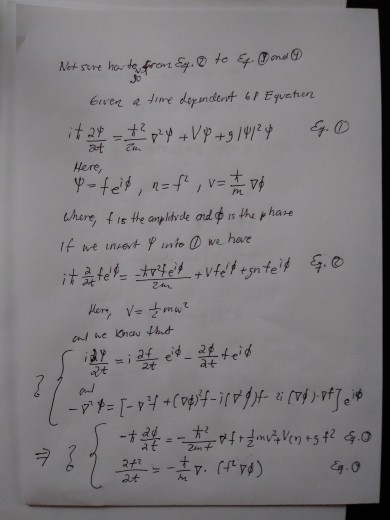 Not sure how to go from Eq. ② to Eq. ③ and ④
Given a time dependent GP Equation
iħ ∂Ψ/∂t = ħ²/2m ∇²Ψ + VΨ + g|Ψ|²Ψ Eq. ①
Here,
Ψ = f e^{iϕ}, n = f², v = ħ/m ∇ϕ
Where, f is the amplitude and ϕ is the phase
If we insert Ψ into ① we have
iħ ∂/∂t f e^{iϕ} = -ħ²∇² f e^{iϕ}/2m + V f e^{iϕ} + gn f e^{iϕ} Eq. ②
Here, V = ½ mω²
and we know that
? { i ∂Ψ/∂t = i ∂f/∂t e^{iϕ} - ∂ϕ/∂t f e^{iϕ}
and
-∇²Ψ = [-∇²f + (∇ϕ)²f - i(∇²ϕ)f - 2i(∇ϕ)·∇f] e^{iϕ}
⇒ ? { -ħ ∂ϕ/∂t = -ħ²/2mf ∇²f + ½ mv² + V(r) + g f² Eq. ③
∂f²/∂t = -ħ/m ∇·(f²∇ϕ) Eq. ④